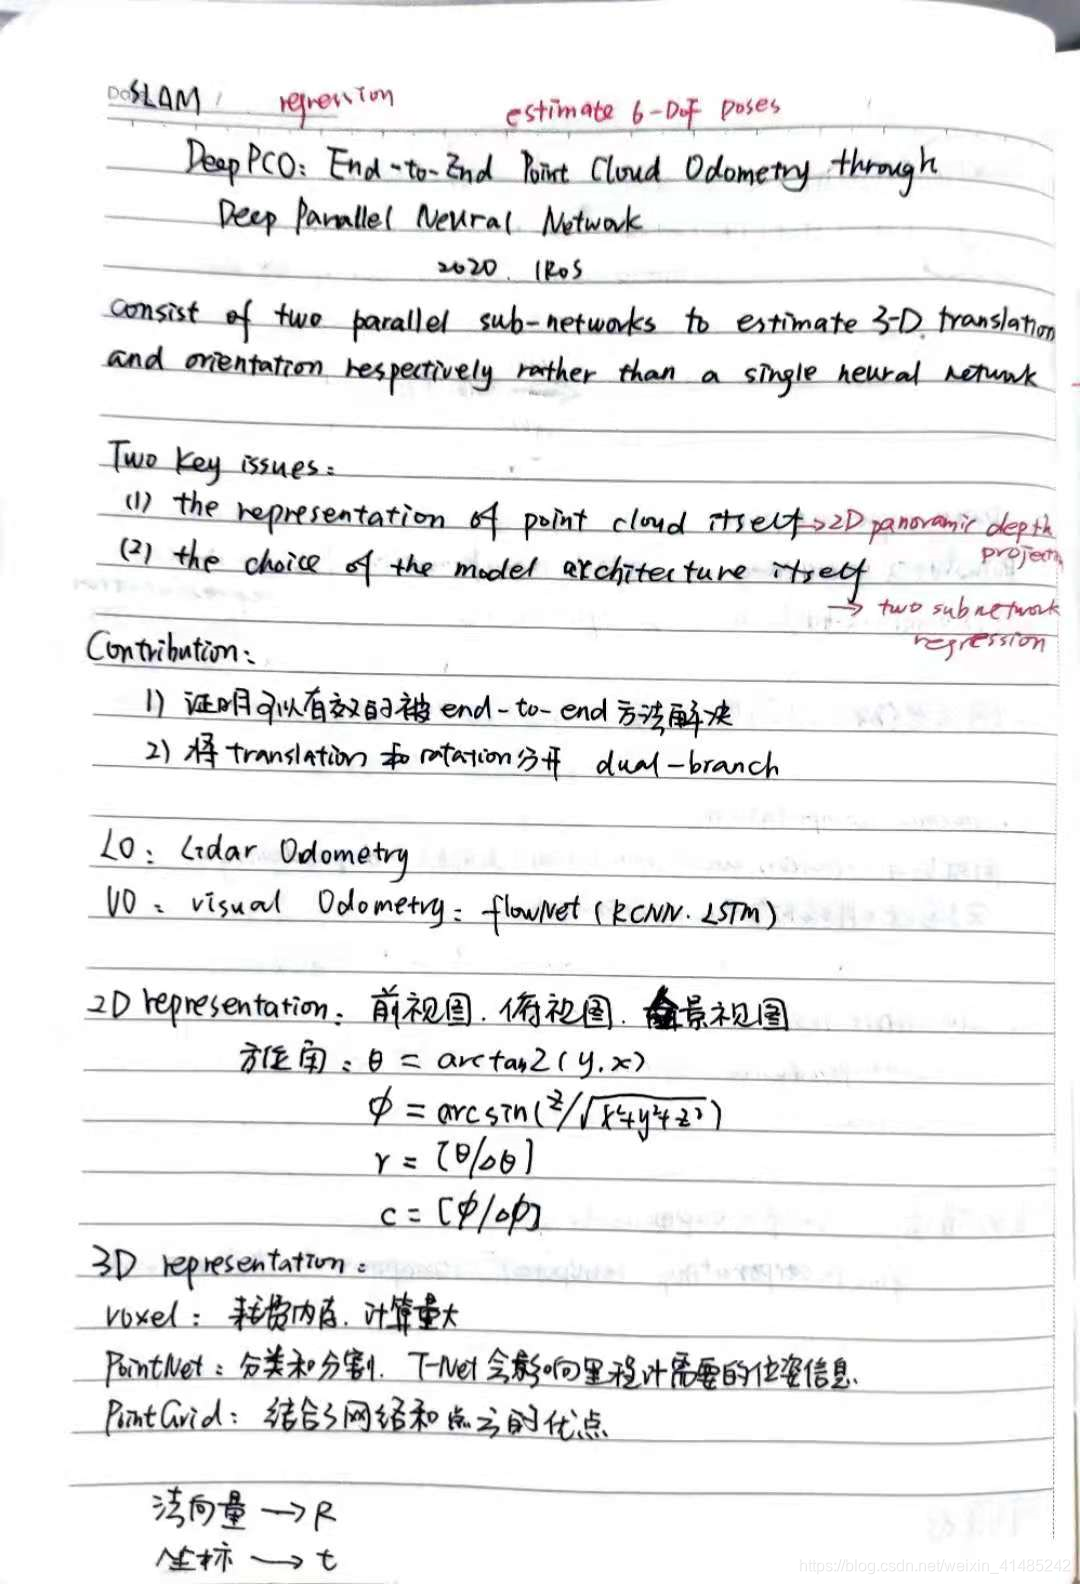 SLAM regression estimate 6-DoF poses
DeepPCO: End-to-End Point Cloud Odometry through
Deep Parallel Neural Network
2020. IROS
consist of two parallel sub-networks to estimate 3-D translation
and orientation respectively rather than a single neural network
Two key issues:
(1) the representation of point cloud itself → 2D panoramic depth
projecti
(2) the choice of the model architecture itself
→ two subnetwork
regression
Contribution:
1) 证明可以有效的被end-to-end方法解决
2) 将translation和ratation分开 dual-branch
LO: Lidar Odometry
VO: visual Odometry: flowNet (RCNN. LSTM)
2D representation: 前视图. 俯视图. 全景视图
方位角: θ = arctan2(y.x)
ϕ = arcsin(z/√x²+y²+z²)
r = [θ/△θ]
c = [ϕ/△ϕ]
3D representation:
voxel: 耗费内存. 计算量大
PointNet: 分类和分割. T-Net会影响里程计需要的位姿信息.
PointGrid: 结合了网络和点云的优点
法向量 → R
坐标 → t
https://blog.csdn.net/weixin_41485242